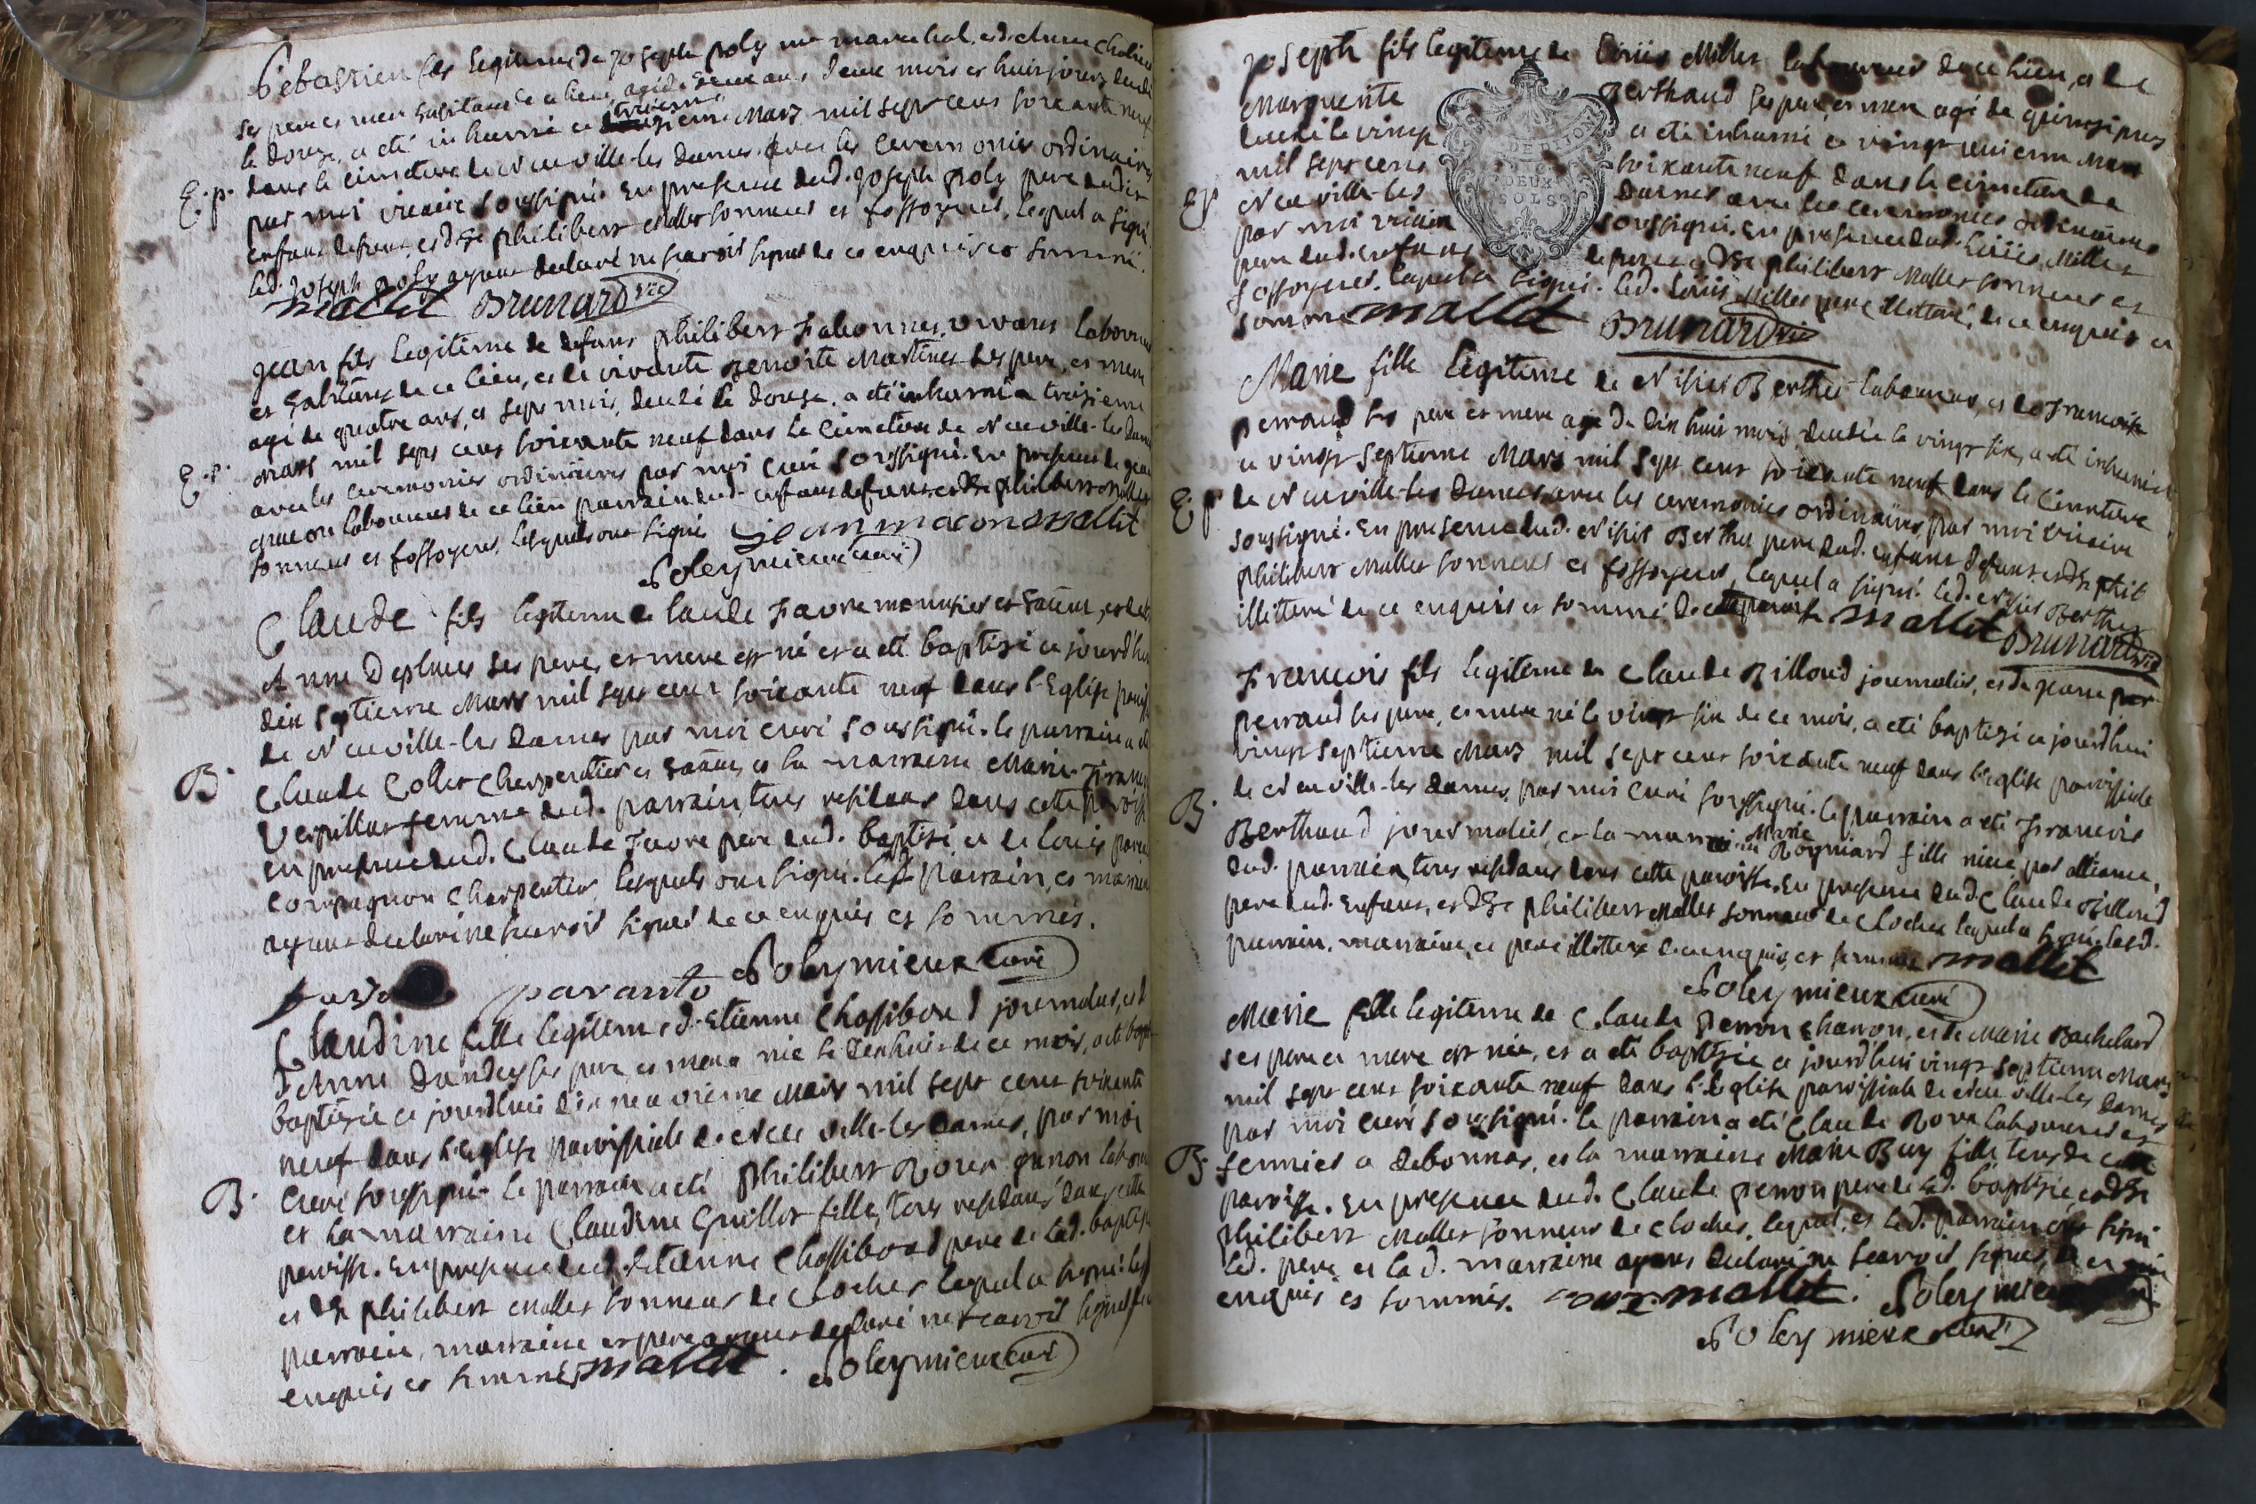 Sebastien fils legitime de joseph poly me marechal, et d'Anne
ses pere et mere habitans de ce lieu agé de ans deux mois et huit jours decedé
le douze, a eté inhumé ce treizieme Mars mil sept cens soixante neuf
E. p. dans le cimetiere de Neuville-les Dames avec les ceremonies ordinaires
par moi vicaire soussigné. En presence dud. joseph poly pere dudit
enfant defunt, et de philibert Mallet sonneur et fossoyeur, lequel a signé
led. joseph poly ayant declaré ne sçavoir signer de ce enquis et sommé.
mallet Brunard vic
jean fils legitime de defunt philibert vivant laboureur
et habitant de ce lieu, et de vivante Benoite Martinet ses pere, et mere
agé de quatre ans, et sept mois, decedé le douze, a eté inhumé ce treizieme
E. p. Mars mil sept cens soixante neuf dans le Cimetiere de Neuville-les Dames
avec les ceremonies ordinaires par moi Curé soussigné. En presence de jean
laboureur de ce lieu parrain dud. enfant defunt et de philibert Mallet
sonneur et fossoyeur, lesquels ont signé jean macon mallet
Soleymieux curé
Claude fils legitime de Claude Favre menuisier et et de
Anne Desplaces ses pere, et mere est né et a eté baptisé ce jourd'hui
dix septieme Mars mil sept cens soixante neuf dans l'Eglise
de Neuville-les Dames par moi curé soussigné. le parrain a eté
B. Claude Collet Charpentier et la marraine Marie
Verpillat femme dud. parrain, tous residans dans cette paroisse
En presence dud. Claude Favre pere dud. baptisé, et de Louis
compagnon Charpentier, lesquels ont signé. lesd. parrain, et marraine
ayant declaré ne scavoir signer de ce enquis et sommés.
paranto Soleymieux curé
Claudine fille legitime d'Etienne Chossibord journalier, et
d'Anne ses pere et mere née le dixhuit de ce mois, a eté
baptisée ce jourd'hui dix neuvieme Mars mil sept cens soixante
neuf dans l'eglise paroissiale de Neuville-les Dames, par moi
B. Curé soussigné le parrain a eté philibert
et la marraine Claudine Guillot fille, tous residans dans cette
paroisse. En presence dud. Etienne Chossibord pere de lad. baptisée
et de philibert Mallet sonneur de cloches lequel a signé lesd
parrain, marraine et pere ayant declaré ne scavoir signer
enquis et sommés mallet. Soleymieux curé
joseph fils legitime de Louis Millet laboureur de ce lieu, et de
Marguerite Berthaud ses pere, et mere agé de
decedé le vingt a eté inhumé ce vingt unieme Mars
mil sept cens soixante neuf dans le cimetiere de
Ep Neuville-les Dames avec les ceremonies ordinaires
par moi vicaire soussigné. En presence dud. Louis Millet
pere dud. enfant defunt et de philibert Mallet sonneur et
fossoyeur, lequel a signé. led. Louis Millet pere illitteré, de ce enquis et
sommé mallet Brunard vic
DE DIJON
DEUX
SOLS
Marie fille legitime de Nisier Berthet laboureur, et de Francoise
perraud ses pere et mere agée de dix huit mois decedée le vingt six, a eté inhumée
ce vingt septieme Mars mil sept cens soixante neuf dans le Cimetiere
E. p. de Neuville-les Dames, avec les ceremonies ordinaires par moi vicaire
soussigné. En presence dud. Nisier Berthet pere dud. enfant defunt et de
philibert Mallet sonneur et fossoyeur, lequel a signé. led. Nisier Berthet
illitteré de ce enquis et sommé mallet Brunard vic
François fils legitime de Claude Billoud journalier, et de jeane
perraud ses pere, et mere né le vingt six de ce mois, a eté baptisé ce jourd'hui
vingt septieme Mars mil sept cens soixante neuf dans l'eglise paroissiale
de Neuville-les Dames, par moi Curé soussigné. le parrain a eté Francois
B. Berthaud journalier, et la marraine Marie fille niece par alliance,
dud. parrain, tous residans dans cette paroisse. En presence dud. Claude Billoud
pere dud. enfant, et de philibert Mallet sonneur de Cloches lequel a signé. lesd.
parrain, marraine, et pere illitterés de ce enquis, et sommés mallet
Soleymieux curé
Marie fille legitime de Claude perron charron, et de Marie Bachelard
ses pere et mere est née, et a eté baptisée ce jourd'hui vingt septieme Mars
mil sept cens soixante neuf dans l'Eglise paroissiale de Neuville-les Dames
par moi curé soussigné. le parrain a eté Claude laboureur et
B. fermier a et la marraine Marie Buy fille tous de cette
paroisse. En presence dud. Claude perron pere de lad. baptisée, et de
philibert Mallet sonneur de cloches, lequel, et led. parrain ont signé
led. pere et lad. marraine ayans declaré ne scavoir signer, de ce
enquis et sommés. mallet. Soleymieux
Soleymieux curé